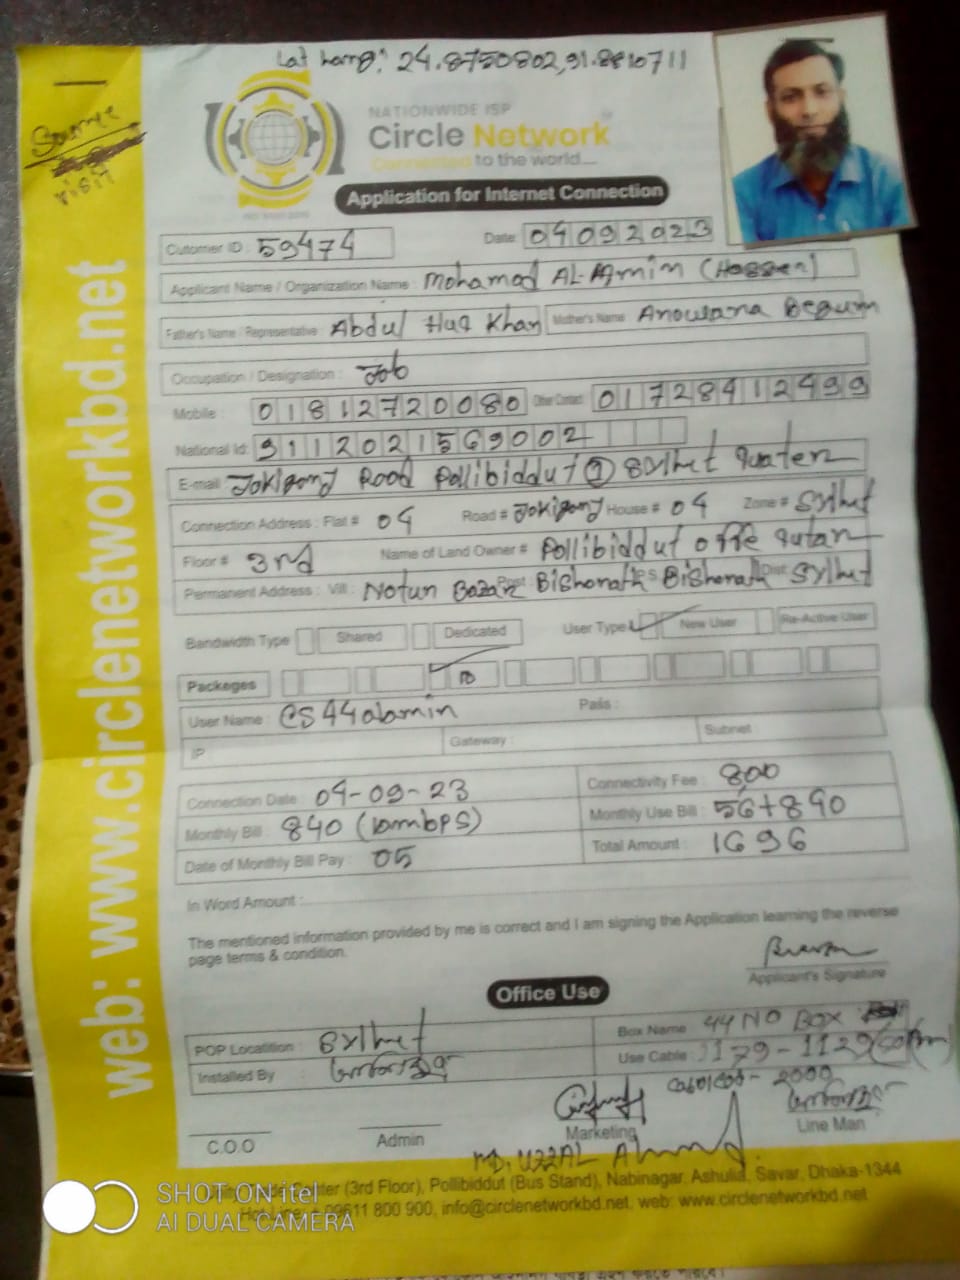 Lat Lang: 24.8750802,91.8810711
Source
visit
NATIONWIDE ISP
Circle Network
Connected to the world....
Application for Internet Connection
Cutomer ID : 59474 Date: 04092023
Applicant Name / Organization Name : Mohamad AL-Amin (Hassen)
Father's Name / Representative : Abdul Huq Khan Mother's Name : Anowara Begum
Occupation / Designation : Job
Mobile : 01812720080 Other Contact : 01728412499
National Id: 9112021569002
E-mail Jokigonj Road Pollibiddut @ Sylhet quater
Connection Address : Flat # 04 Road # Jokigonj House # 04 Zone # Sylhet
Floor # 3rd Name of Land Owner # Pollibiddut offe qutar
Permanent Address : Vill : Notun Bazar Post : Bishonath P.S Bishonath Dist Sylhet
Bandwidth Type Shared Dedicated User Type New User Re-Active User
Packeges 10
User Name : CS44alamin Pass :
IP : Gateway : Subnet
Connection Date : 04-09-23 Connectivity Fee : 800
Monthly Bill : 840 (10mbps) Monthly Use Bill : 56+840
Date of Monthly Bill Pay : 05 Total Amount : 1696
In Word Amount :
The mentioned information provided by me is correct and I am signing the Application learning the reverse
page terms & condition.
Applicant's Signature
Office Use
POP Locatition : Sylhet Box Name 44 NO BOX
Installed By Use Cable : 1179-1129
2000
C.O.O Admin Marketing Line Man
MD. UZZAL Ahmed
(3rd Floor), Pollibiddut (Bus Stand), Nabinagar, Ashulia, Savar, Dhaka-1344
09611 800 900, info@circlenetworkbd.net, web: www.circlenetworkbd.net
web: www.circlenetworkbd.net
SHOT ON itel
AI DUAL CAMERA